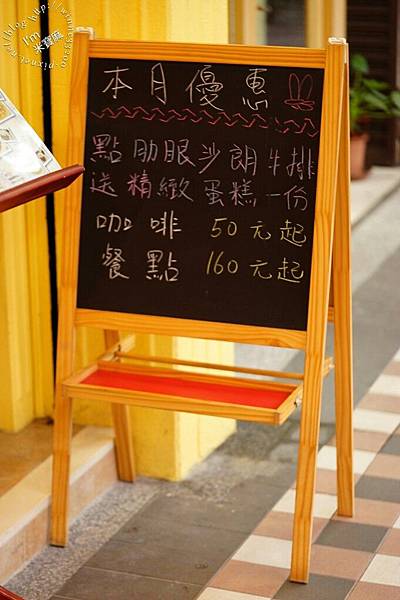 本月優惠
點肋眼沙朗牛排
送精緻蛋糕一份
咖啡 50元起
餐點 160元起
I'm
米寶麻